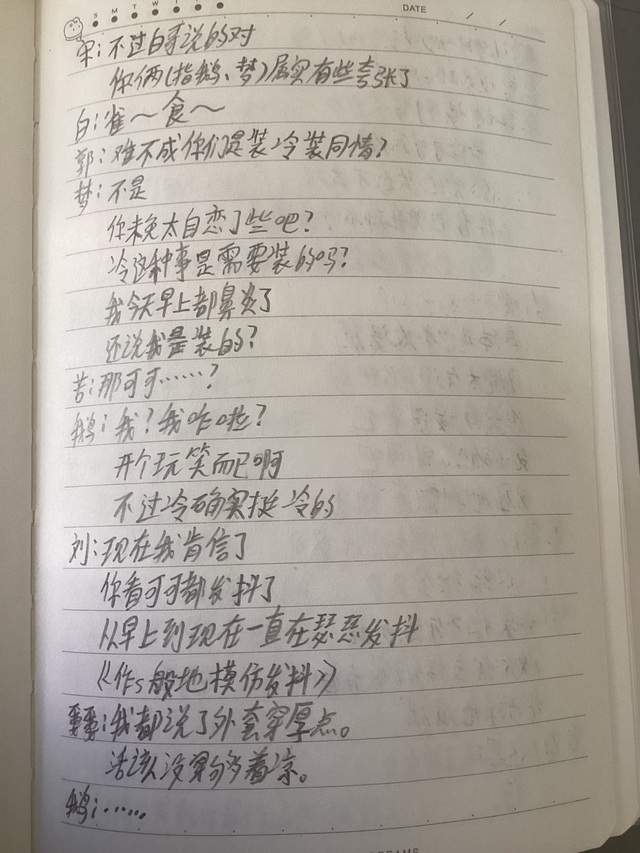 S M T W T
DATE / /
宋：不过白哥说的对
你俩（指鹅、梦）属实有些夸张了
白：雀～食～
郭：难不成你们是装冷装同情？
梦：不是
你未免太自恋了些吧？
冷这种事是需要装的吗？
我今天早上都鼻炎了
还说我是装的？
苦：那可可……？
鹅：我？我咋啦？
开个玩笑而已啊
不过冷确实挺冷的
刘：现在我肯信了
你看可可都发抖了
从早上到现在一直在瑟瑟发抖
《作s般地模仿发抖》
：我都说了外套穿厚点。
活该没着凉。
鹅：……